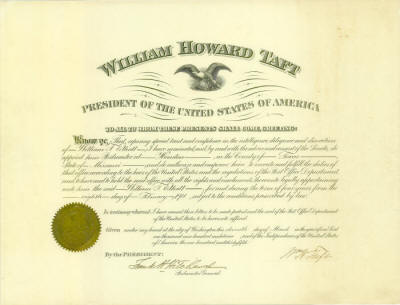 WILLIAM HOWARD TAFT
PRESIDENT OF THE UNITED STATES OF AMERICA
TO ALL TO WHOM THESE PRESENTS SHALL COME, GREETING:
Know ye, That, reposing special trust and confidence in the intelligence, diligence and discretion
of William I nominated, by and with the advice and consent of the Senate, do
appoint him Postmaster at Houston in the County of
State of and do authorize and empower him to execute and fulfil the duties of
that office according to the laws of the United States and the regulations of the Post Office Department
and to have and to hold the said office, with all the rights and emoluments thereunto legally appertaining
unto him the said William for and during the term of four years from the
day of February subject to the conditions prescribed by law.
In testimony whereof, I have caused these letters to be made patent and the seal of the Post Office Department
of the United States to be hereunto affixed.
Given under my hand at the city of Washington this day of March in the year of our Lord
one thousand nine hundred and of the Independence of the United States
of America the one hundred and thirty-fifth.
By the PRESIDENT:
Wm H Taft
Frank H Hitchcock
Postmaster General